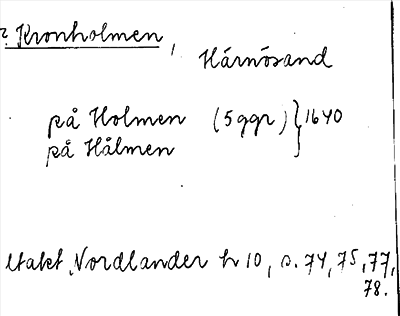 ? Kronholmen,
Härnösand
på Holmen (5 ggr) } 1640
på Hålmen
Utakt. Nordlander h 10, s. 74, 75, 77,
78.